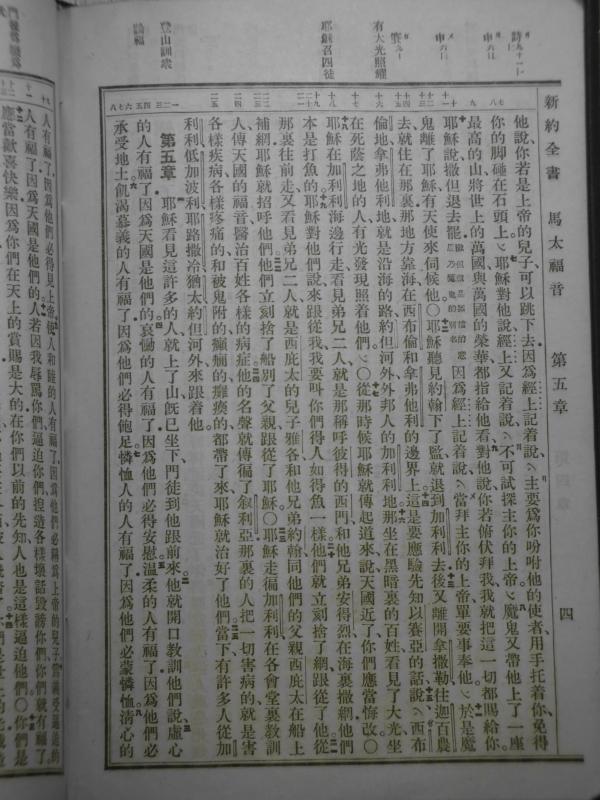 新約全書 馬太福音 第五章 四
他說你若是上帝的兒子可以跳下去因爲經上記着說主要爲你吩咐他的使者用手托着你免得
你的脚碰在石頭上耶穌對他說經上又記着說不可試探主你的上帝魔鬼又帶他上了一座
最高的山將世上的萬國與萬國的榮華都指給他看對他說你若俯伏拜我我就把這一切都賜給你
耶穌說撒但退去罷因爲經上記着說當拜主你的上帝單要事奉他於是魔
鬼離了耶穌有天使來伺候他〇耶穌聽見約翰下了監就退到加利利去後又離開拿撒勒往迦百農
去就住在那裏那地方靠海在西布倫和拿弗他利的邊界上這是要應驗先知以賽亞的話說西布
倫地拿弗他利地就是沿海的路約但河外外邦人的加利利地那坐在黑暗裏的百姓看見了大光坐
在死蔭之地的人有光發現照着他們〇從那時候耶穌就傳起道來說天國近了你們應當悔改〇
耶穌在加利利海邊行走看見弟兄二人就是那稱呼彼得的西門和他兄弟安得烈在海裏撒網他們
本是打魚的耶穌對他們說來跟從我我要叫你們得人如得魚一樣他們就立刻捨了網跟從了他從
那裏往前走又看見弟兄二人就是西庇太的兒子雅各和他兄弟約翰同他們的父親西庇太在船上
補網耶穌就招呼他們他們立刻捨了船別了父親跟從了耶穌〇耶穌走徧加利利在各會堂裏教訓
人傳天國的福音醫治百姓各樣的病症他的名聲就傳徧了叙利亞那裏的人把一切害病的就是害
各樣疾病各樣疼痛的和被鬼附的癲癎的癱瘓的都帶了來耶穌就治好了他們當下有許多人從加
利利低加波利耶路撒冷猶太約但河外來跟着他
第五章 耶穌看見這許多的人就上了山旣已坐下門徒到他跟前來他就開口教訓他們說虛心
的人有福了因爲天國是他們的哀慟的人有福了因爲他們必得安慰溫柔的人有福了因爲他們必
承受地土飢渴慕義的人有福了因爲他們必得飽足憐恤人的人有福了因爲他們必蒙憐恤淸心的
人有福了因爲他們必得見上帝使人和睦的人有福了因爲他們必稱爲上帝的兒子爲義受逼迫的
人有福了因爲天國是他們的人若因我辱罵你們逼迫你們揑造各樣壞話毀謗你們你們就有福了
應當歡喜快樂因爲你們在天上的賞賜是大的在你們以前的先知人也是這樣逼迫他們〇你們是
有大光照耀
耶穌召四徒
登山訓衆
論福